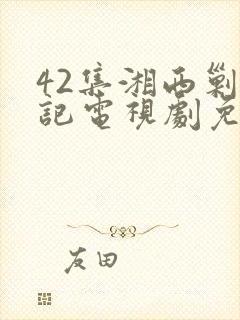 42集湘西剿
記電視劇免
友田